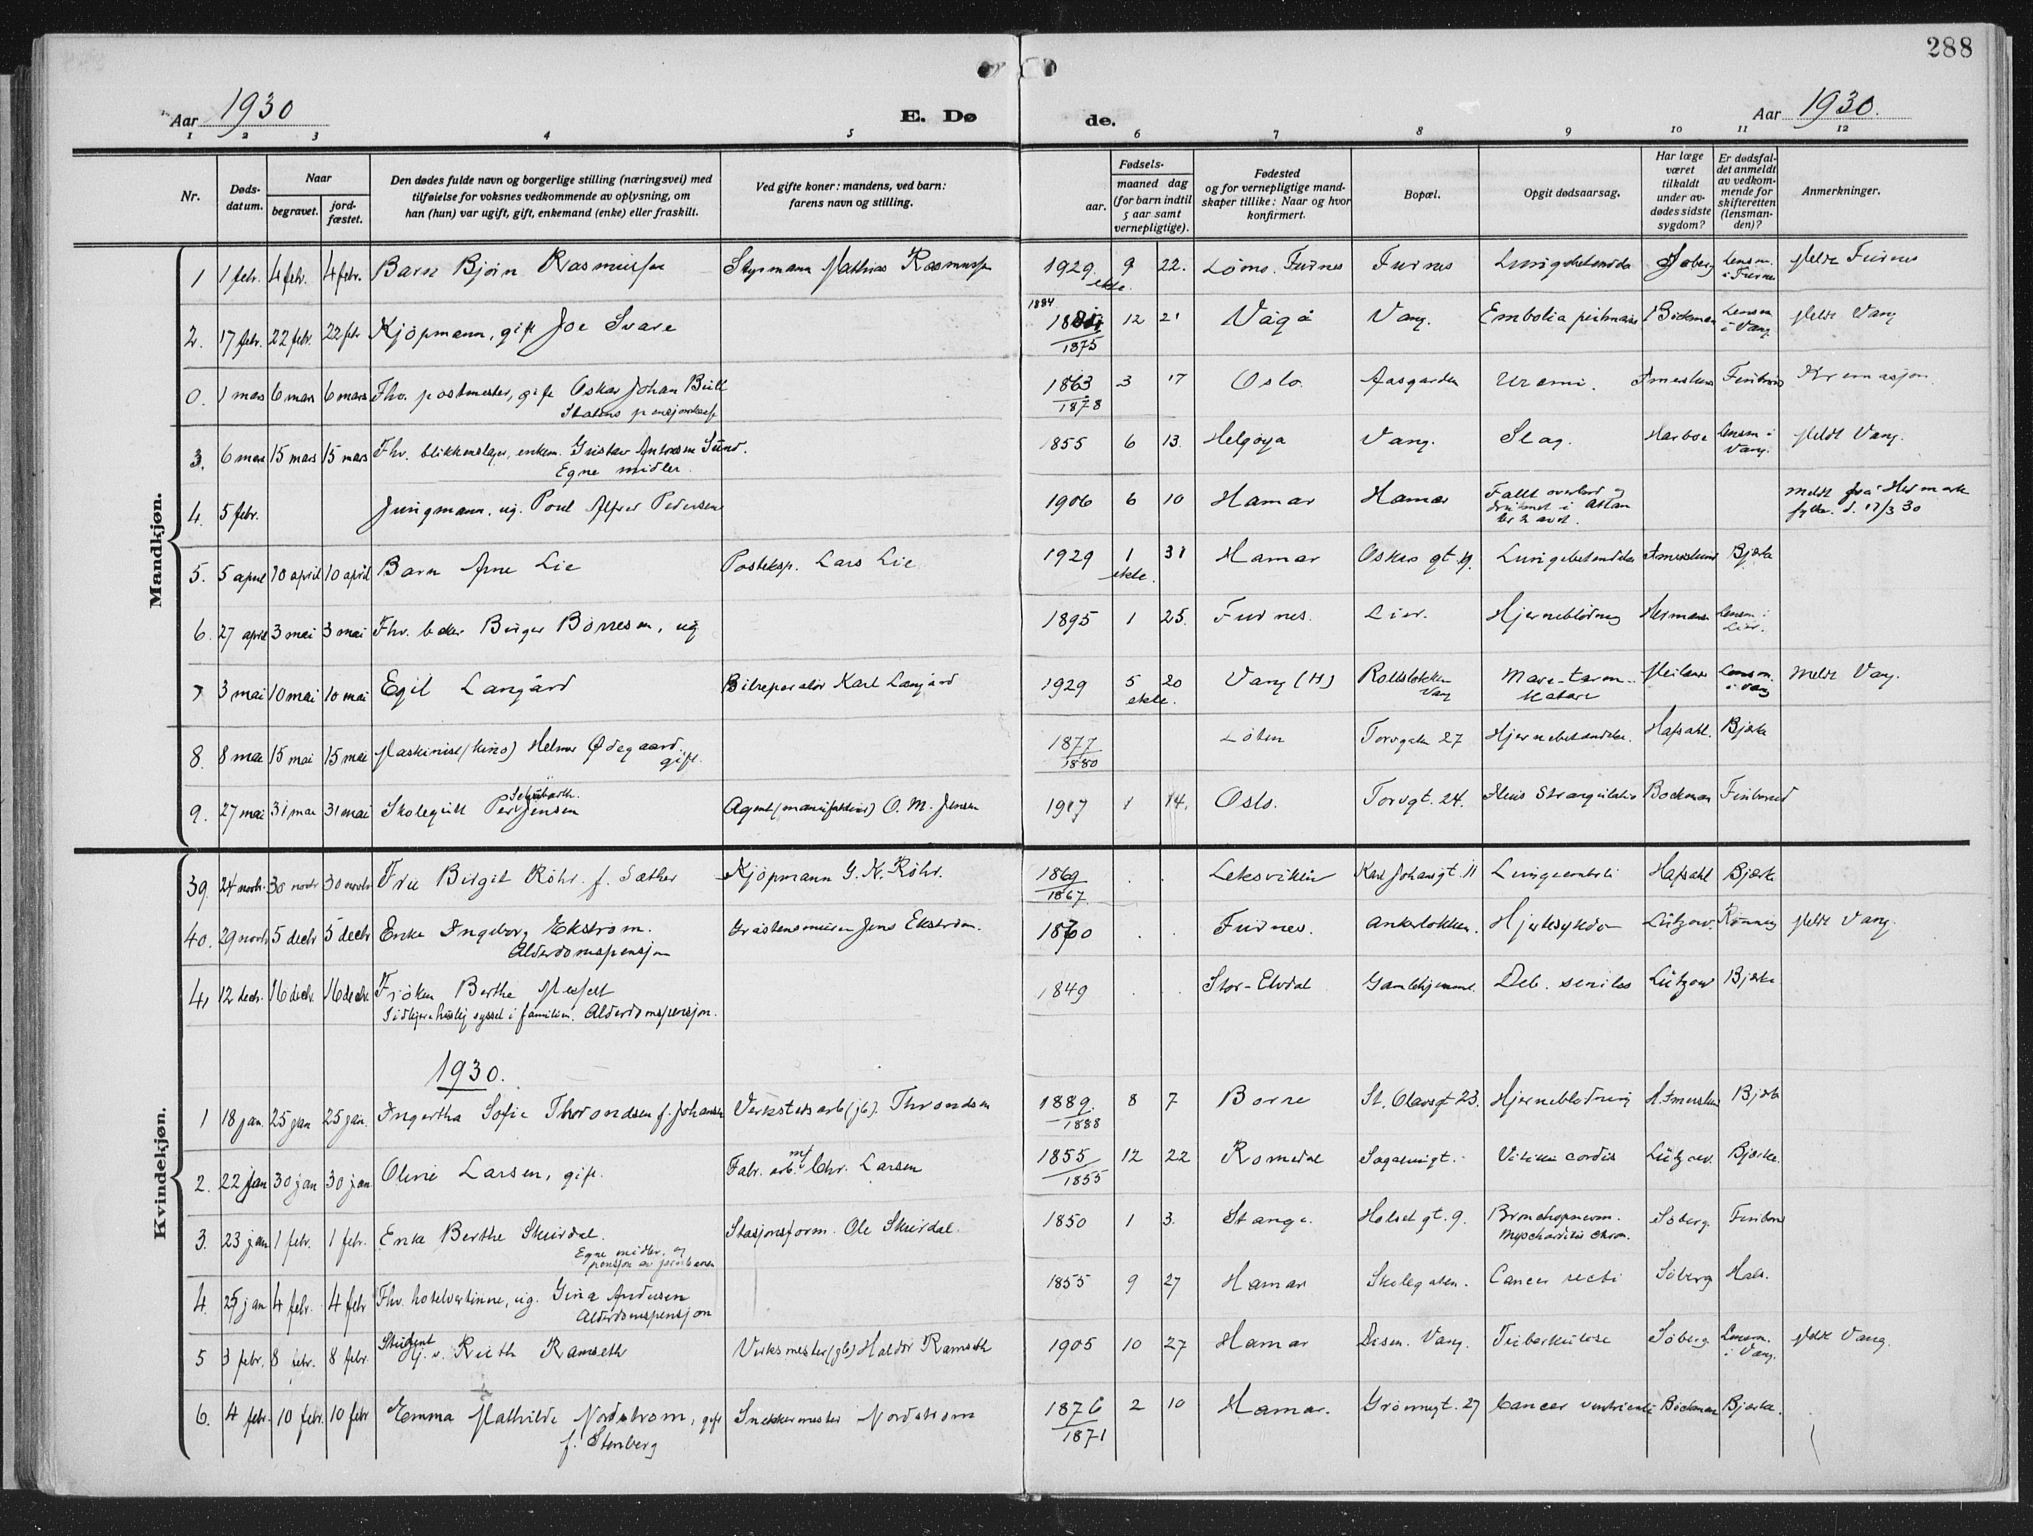 288
Aar 1930
E. Dø
de.
Aar 1930.
1 2 3 4 5 6 7 8 9 10 11 12
Nr.
Døds-
datum.
Naar
begravet.
jord-
fæstet.
Den dødes fulde navn og borgerlige stilling (næringsvei) med
tilføielse for voksnes vedkommende av oplysning, om
han (hun) var ugift, gift, enkemand (enke) eller fraskilt.
Ved gifte koner: mandens, ved barn:
farens navn og stilling.
Fødsels-
aar.
maaned dag
(for barn indtil
5 aar samt
vernepligtige).
Fødested
og for vernepligtige mand-
skaper tillike: Naar og hvor
konfirmert.
Bopæl.
Opgit dødsaarsag.
Har læge
været
tilkaldt
under av-
dødes sidste
sygdom?
Er dødsfal-
det anmeldt
av vedkom-
mende for
skifteretten
(lensman-
den)?
Anmerkninger.
Mandkjøn.
1 1 febr. 4 febr. 4 febr. Barn Bjørn Rasmussen Styrmann Mathias Rasmussen 1929 9 22. Furnes Furnes Søberg Lensm. Meldt Furnes
ekte. i Furnes
1884
2. 17 febr. 22 febr. 22 febr Kjøpmann, gift Joe Svare 12 21 Vågå Vang. Embolia pulmonis Böckman Lensm Meldt Vang
1875 i Vang
0. 1 mars 6 mars 6 mars Fhv. postmester, gift Oskar Johan Bull 1863 3 17 Oslo Aasgarden Uremi. Kremasjon.
Statens pensjonskasse 1878
3. 6 mars 15 mars 15 mars Fhv. blikkenslager, enkem. Gustav Antonsen Sund. 1855 6 13. Helgøya Vang. Slag. Harboe Lensm i Meldt Vang.
Egne midler. Vang.
4. 5 febr. Jungmann, ug. Poul Alfred Pedersen 1906 6 10 Hamar Hamar Falt overbord og meldt fra Hedmark
druknet i Atlan fylke. d. 17/3 30
5. 5 april 10 april 10 april Barn Arne Lie Posteksp. Lars Lie 1929 1 31 Hamar Oskars gt. 19. Lungebetendelse Bjørke
ekte.
6. 27 april 3 mai 3 mai Fhv. baker Birger Børresen, ug 1895 1 25. Furnes. Lier. Hjerneblødning Lensm i
Lier.
7 3 mai 10 mai 10 mai Egil Langård Bilreparatør Karl Langård 1929 5 20 Vang (H) Rollsløkken Mave-tarm- Lensm. Meldt Vang.
ekte. Vang katarr i Vang
8. 8 mai 15 mai 15 mai Maskinist (kino) Helmer Ødegaard. 1877 Løten Torvgaten 27 Hjernebetendelse. Hafsahl. Bjørke
gift. 1880
9. 27 mai 31 mai 31 mai Skolegutt Per Jensen Agent (manufaktur) O. M. Jensen 1917 1 14. Oslo. Torvgt. 24. Ileus Strangulatio Böckman
Kvindekjøn.
39. 24 novbr. 30 novbr 30 novbr Frue Birgit Röhr. f. Sæther Kjøpmann G. K. Röhr. 1869 . . Leksviken Karl Johansgt. 11 Lungeemboli Hafsahl Bjørke
1867.
40. 29 novbr 5 decbr 5 decbr Enke Ingeborg Ekstrøm. Jens Ekstrøm. 1860 . . Furnes. Ankerløkken. Hjertesykdom Lützow. Rønning Meldt Vang.
Alderdomspensjon
41 12 decbr. 16 decbr. 16 decbr. Frøken Berthe 1849 . . Stor-Elvdal Gamlehjemmet. Deb. seniles Lützow Bjørke
i familien. Alderdomspensjon.
1930.
1 18 jan. 25 jan 25 jan. Ingertha Sofie Throndsen f. Johansen Verkstedsarb (jb). Throndsen 1889. 8 7 Borre St. Olavsgt 23. Hjerneblødning Bjørke
1888
2. 22 jan 30 jan 30 jan Oline Larsen, gift. Fabr. arb. Chr. Larsen 1855 12 22 Romedal Vitium cordis Lützow. Bjørke.
1855
3. 23 jan 1 febr. 1 febr. Enke Berthe Skurdal. Stasjonsform. Ole Skurdal. 1850 1 3. Stange. Holset gt. 9. Bronchopneum. Søberg
Egne midler og Myocarditis chron.
pensjon av jernbanen
4. 25 jan 4 febr. 4 febr Fhv. hotelvertinne, ug. Gina Andersen 1855 9 27 Hamar Skolegaten. Cancer recti Søberg Hals.
Alderdomspensjon
5 3 febr. 8 febr. 8 febr. Student Ruth Ramseth Verksmester (jb) Haldor Ramseth 1905 10 27 Hamar Disen. Vang. Tuberkulose Søberg Lensm. Meldt Vang.
i Vang.
6. 4 febr. 10 febr. 10 febr Emma Mathilde Nordstrøm, gift Snekkermester Nordstrøm 1876 2 10 Hamar. Grønnegt. 27 Cancer ventriculi Böckman Bjørke.
f. Stenberg 1871